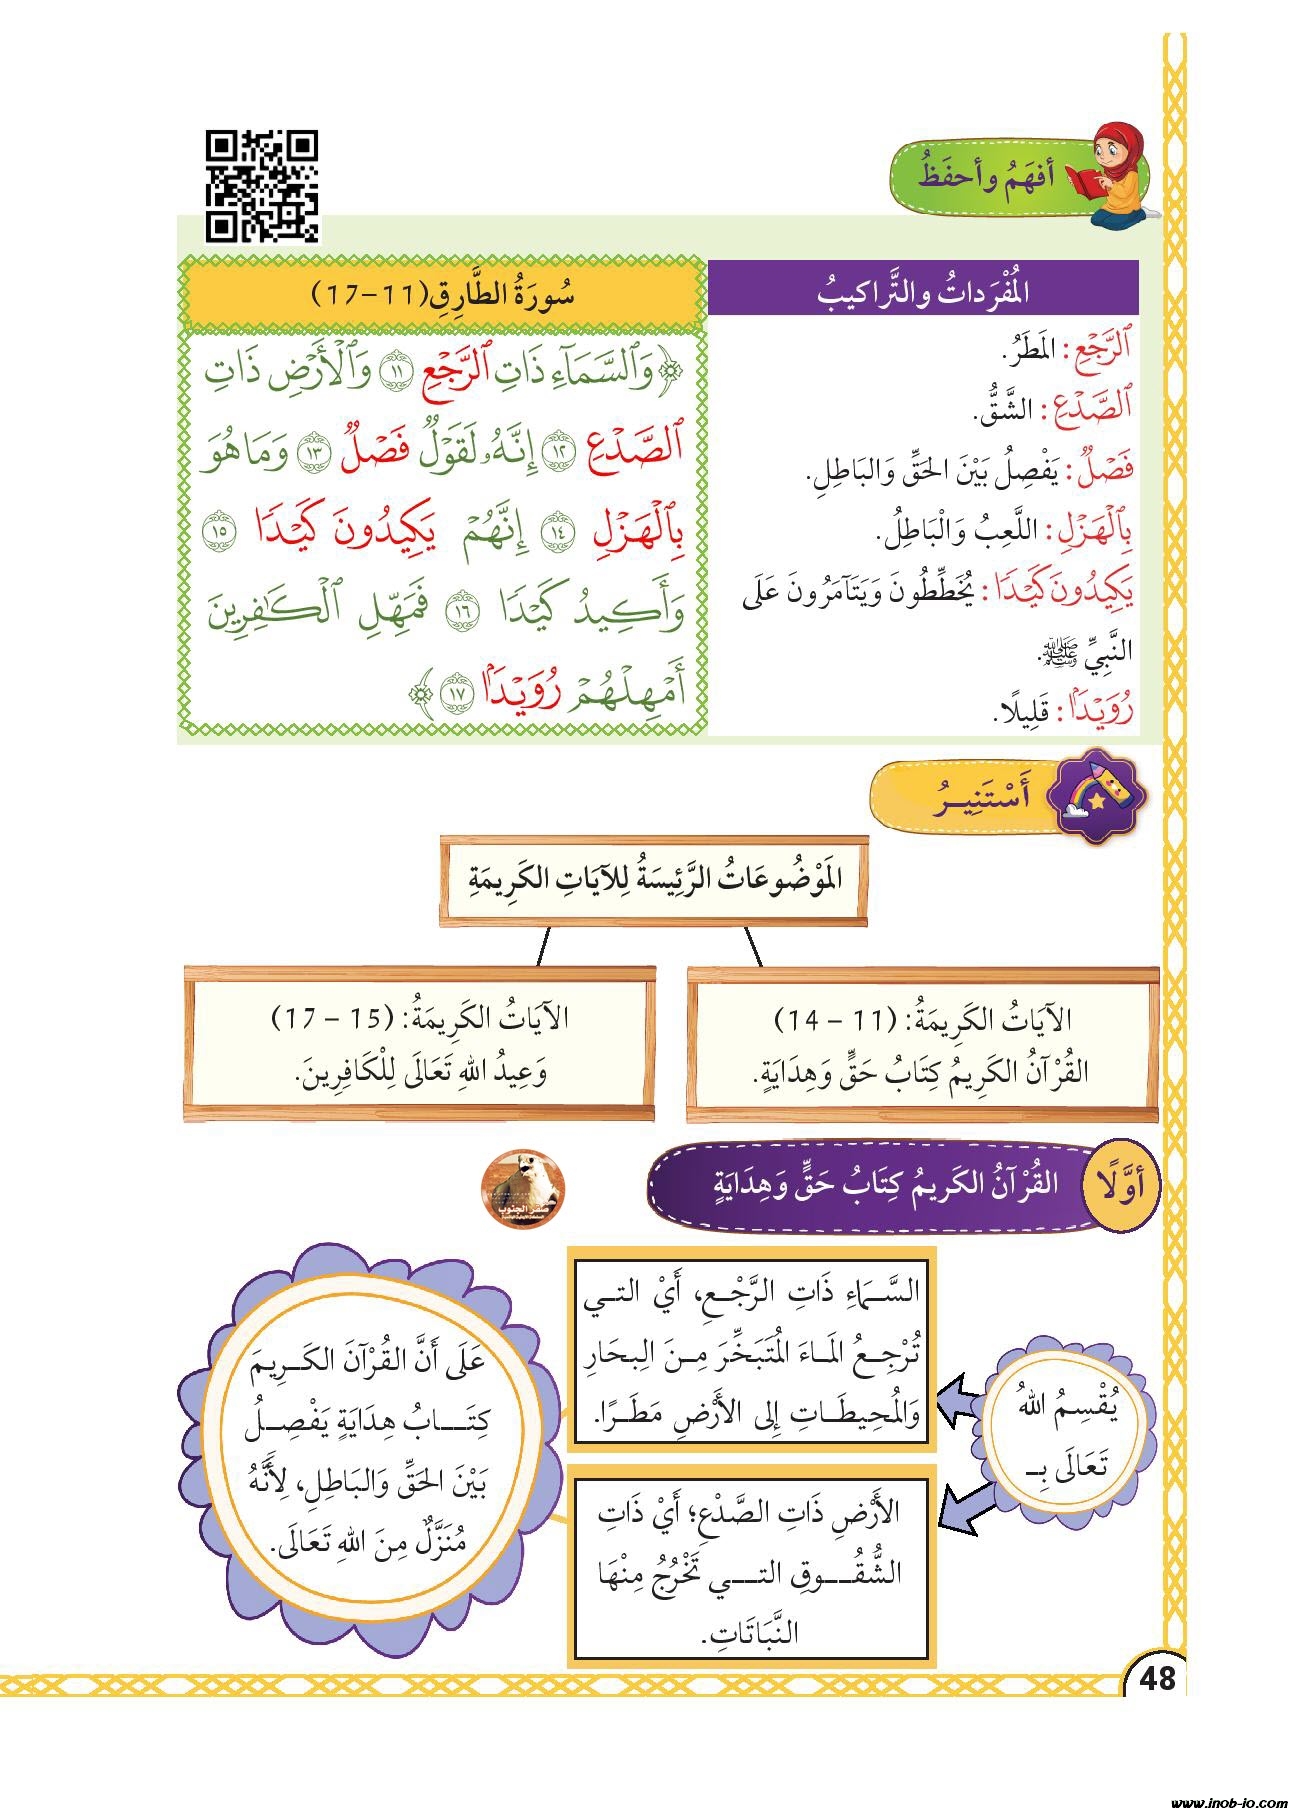 أفهَمُ وأحفَظُ
المُفْرَداتُ والتَّراكيبُ
ٱلرَّجۡعِ: المَطَرُ.
ٱلصَّدۡعِ: الشَّقُّ.
فَصۡلٞ: يَفْصِلُ بَيْنَ الحَقِّ وَالبَاطِلِ.
بِٱلۡهَزۡلِ: اللَّعِبُ وَالْبَاطِلُ.
يَكِيدُونَ كَيۡدٗا: يُخَطِّطُونَ وَيَتَآمَرُونَ عَلَى
النَّبِيِّ ﷺ.
رُوَيۡدَۢا: قَلِيلًا.
سُورَةُ الطَّارِقِ(11-17)
﴿وَٱلسَّمَآءِ ذَاتِ ٱلرَّجۡعِ ١١ وَٱلۡأَرۡضِ ذَاتِ
ٱلصَّدۡعِ ١٢ إِنَّهُۥ لَقَوۡلٞ فَصۡلٞ ١٣ وَمَا هُوَ
بِٱلۡهَزۡلِ ١٤ إِنَّهُمۡ يَكِيدُونَ كَيۡدٗا ١٥
وَأَكِيدُ كَيۡدٗا ١٦ فَمَهِّلِ ٱلۡكَٰفِرِينَ
أَمۡهِلۡهُمۡ رُوَيۡدَۢا ١٧﴾
أَسْتَنِيـرُ
المَوْضُوعَاتُ الرَّئِيسَةُ لِلآيَاتِ الكَرِيمَةِ
الآيَاتُ الكَرِيمَةُ: (11 - 14)
القُرْآنُ الكَرِيمُ كِتَابُ حَقٍّ وَهِدَايَةٍ.
الآيَاتُ الكَرِيمَةُ: (15 - 17)
وَعِيدُ اللهِ تَعَالَى لِلْكَافِرِينَ.
أوَّلًا
القُرْآنُ الكَرِيمُ كِتَابُ حَقٍّ وَهِدَايَةٍ
صقر الجنوب
يُقْسِمُ اللهُ
تَعَالَى بِـ
السَّـمَاءِ ذَاتِ الرَّجْـعِ، أَيْ التـي
تُرْجِـعُ المَـاءَ المُتَبَخِّرَ مِـنَ الِبحَارِ
وَالمُحِيطَـاتِ إِلى الأَرْضِ مَطَـرًا.
الأَرْضِ ذَاتِ الصَّدْعِ؛ أَيْ ذَاتِ
الشُّقُـوقِ التـي تَخْرُجُ مِنْهَا
النَّبَاتَاتِ.
عَلَى أَنَّ القُرْآنَ الكَـرِيمَ
كِتَـابُ هِدَايَةٍ يَفْصِـلُ
بَيْنَ الحَقِّ وَالبَاطِلِ، لِأَنَّهُ
مُنَزَّلٌ مِنَ اللهِ تَعَالَى.
48
www.jnob-jo.com